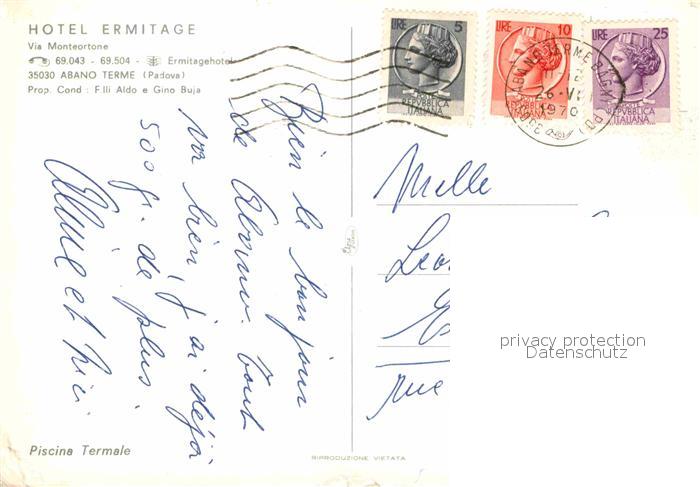 HOTEL ERMITAGE
Via Monteortone
69.043 - 69.504 - Ermitagehotel
35030 ABANO TERME (Padova)
Prop. Cond : F.lli Aldo e Gino Buja
LIRE 5
REPVBBLICA
ITALIANA
LIRE 10
REPVBBLICA
ITALIANA
LIRE 25
POSTE
REPVBBLICA
ITALIANA
26 - VI
1970
Bien le bonjour
de Abano. Tout
va bien, j'ai déjà
500 g. de plus.
et
Melle
Leo
rue
privacy protection
Datenschutz
Piscina Termale
RIPRODUZIONE VIETATA